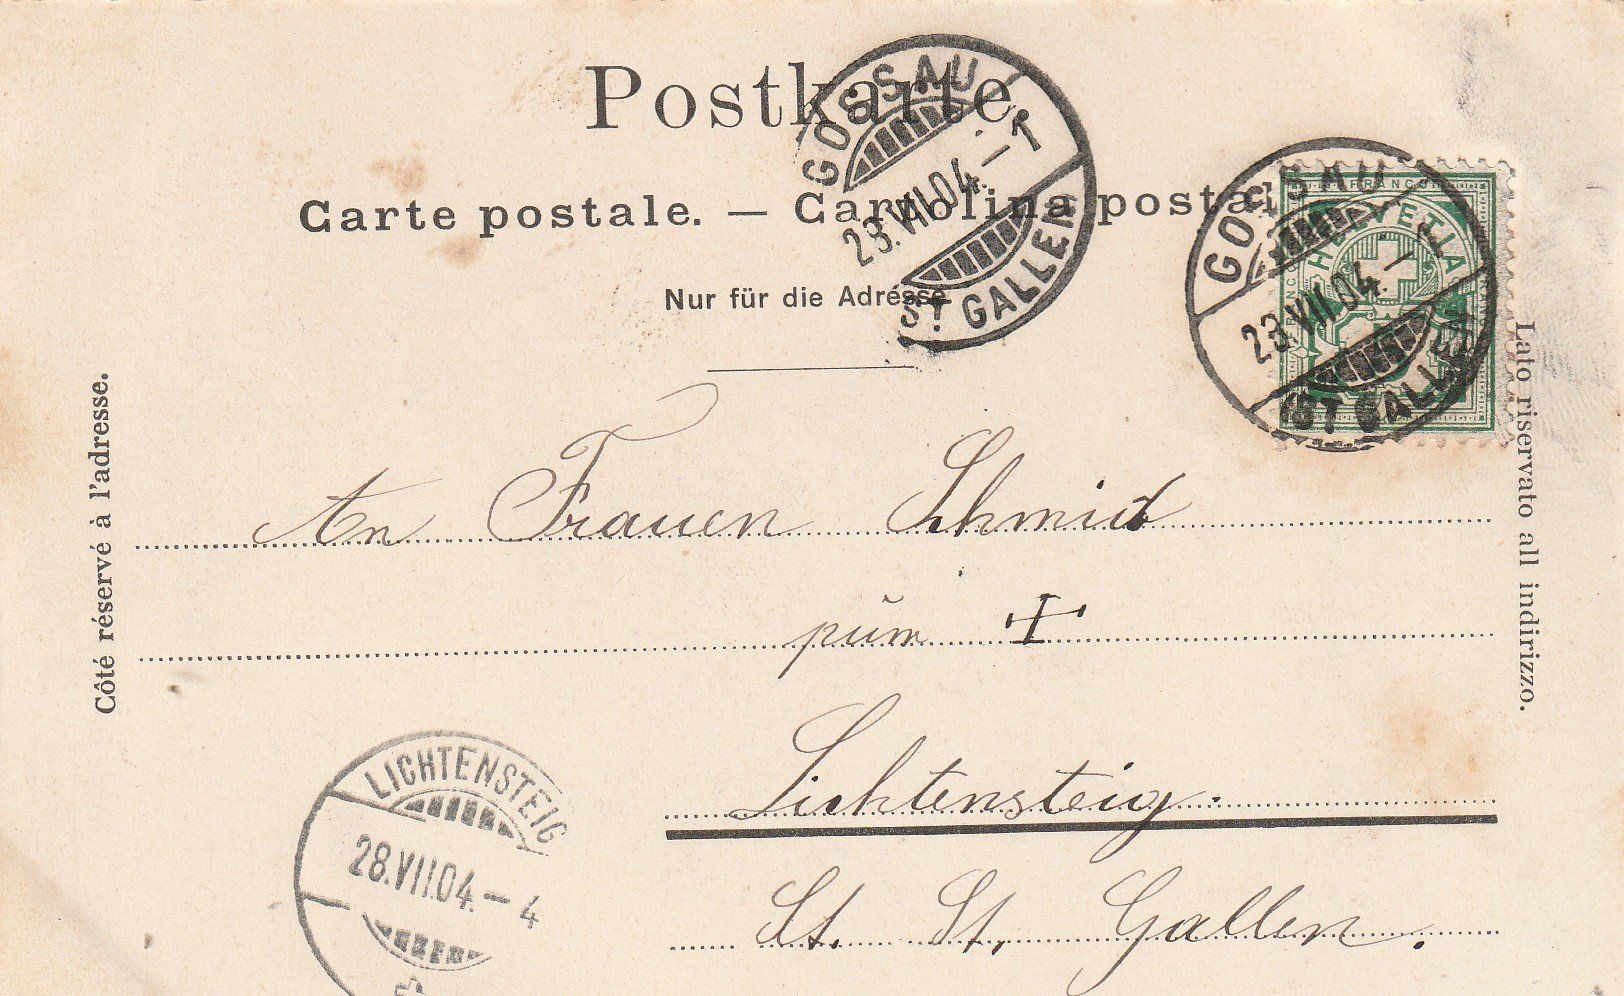 Postkarte.
Carte postale. — Cartolina postale.
Nur für die Adresse
Côté réservé à l'adresse.
Lato riservato all indirizzo.
GOSSAU
23.VII.04.–1
ST GALLEN
GOSSAU
23.VII.04.–1
ST GALLEN
FRANCO
HELVETIA
An Frauen Schmid
pŭm +
Lichtensteig.
St. St. Gallen.
LICHTENSTEIG
28.VII.04.–4